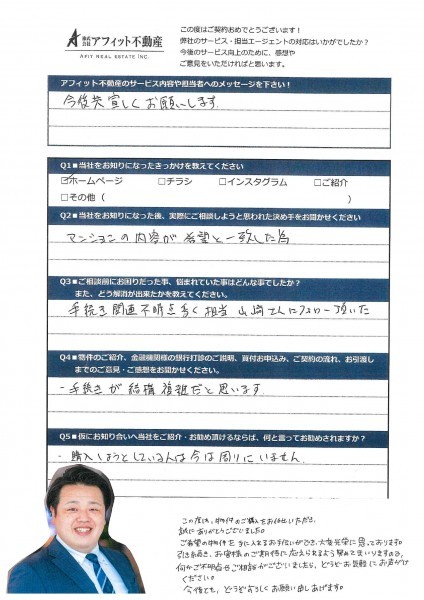 株式会社 アフィット不動産
AFIT REAL ESTATE INC.
この度はご契約おめでとうございます！
弊社のサービス・担当エージェントの対応はいかがでしたか？
今後のサービス向上のために、感想や
ご意見をいただければと思います。
アフィット不動産のサービス内容や担当者へのメッセージを下さい！
今後共宜しくお願いします
Q1■当社をお知りになったきっかけを教えてください
☑ホームページ □チラシ □インスタグラム □ご紹介
□その他（ ）
Q2■当社をお知りになった後、実際にご相談しようと思われた決め手をお聞かせください
マンションの内容が希望と一致した為
Q3■ご相談前にお困りだった事、悩まれていた事はどんな事でしたか？
また、どう解消が出来たかを教えてください。
手続き関連不明点多く担当 山崎さんにフォロー頂いた
Q4■物件のご紹介、金融機関様の銀行打診のご説明、買付お申込み、ご契約の流れ、お引渡し
までのご意見・ご感想をお聞かせください。
・手続きが結構複雑だと思います
Q5■仮にお知り合いへ当社をご紹介・お勧め頂けるならば、何と言ってお勧めされますか？
・購入しようとしている人は今は周りにいません
この度は、物件のご購入をお任せいただき、
誠にありがとうございました。
ご希望の物件を手に入れるお手伝いができ、大変光栄に思っております。
引き続き、お客様のご期待に応えられるよう努めてまいりますので、
何かご不明点やご相談がございましたら、どうぞお気軽にお声がけ
ください。
今後とも、どうぞよろしくお願い申しあげます。